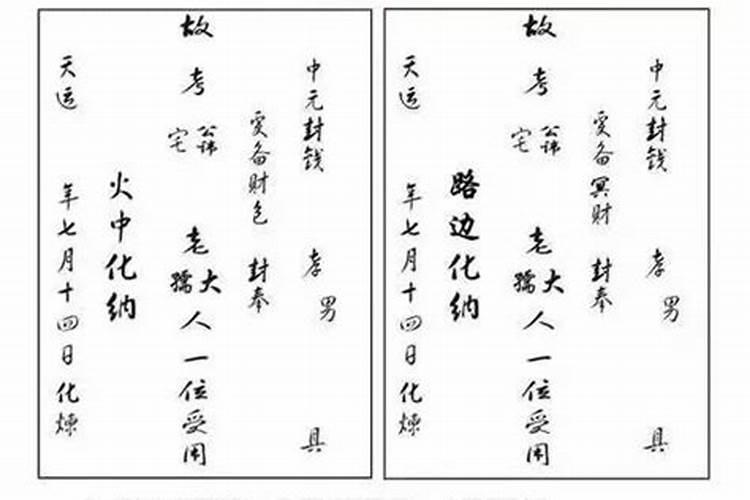 中元封钱 孝男 具
爰备冥财 封奉
故考 公讳 宅 老大孺人一位受用
路边化纳
天运 年七月十四日化炼
中元封钱 孝男 具
爰备财包 封奉
故考 公讳 宅 老大孺人一位受用
火中化纳
天运 年七月十四日化炼